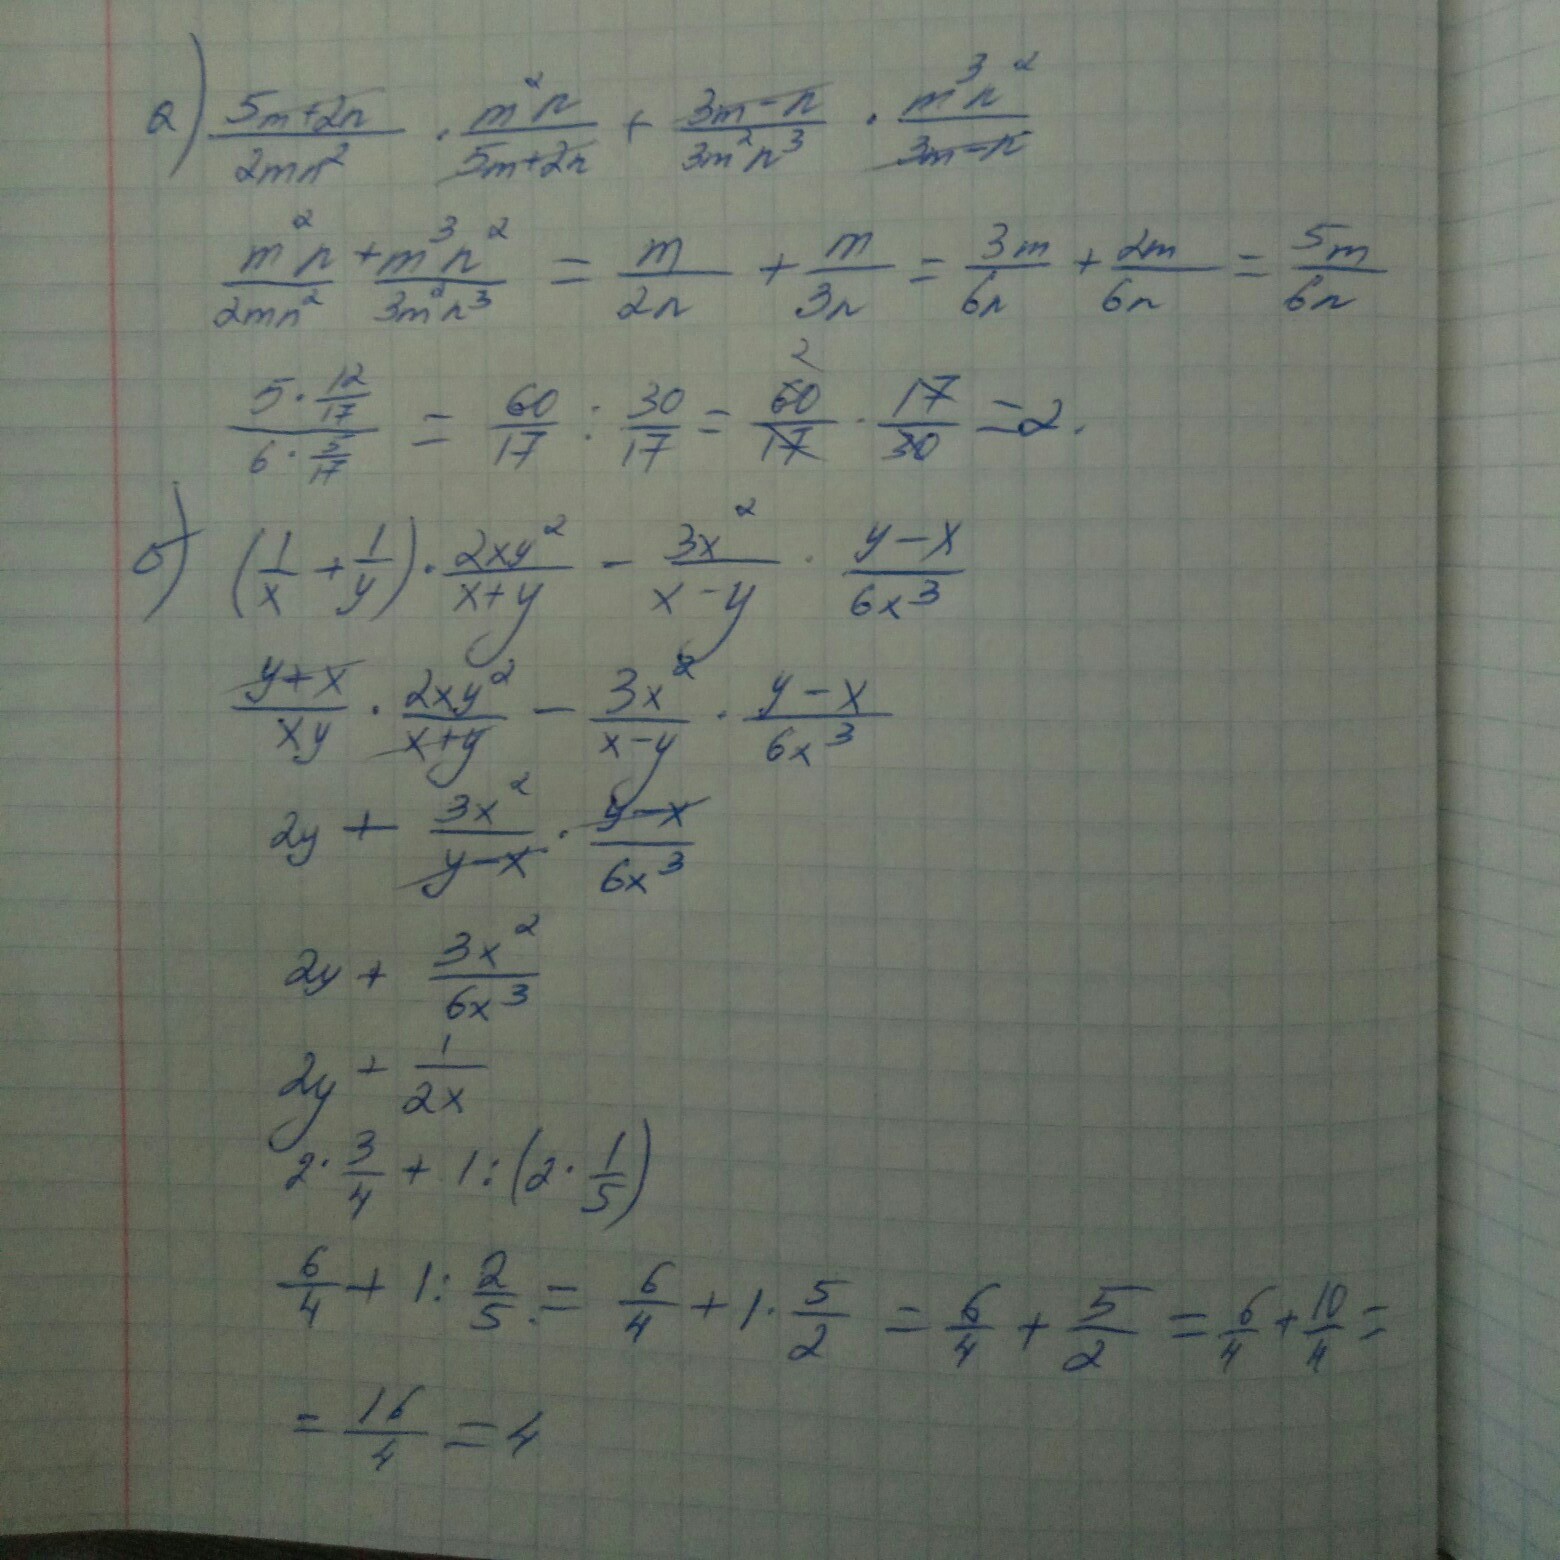 а) (5m+2n)/(2mn²) · (m²n)/(5m+2n) + (3m-n)/(3m²n³) · (m³n²)/(3m-n)
(m²n)/(2mn²) + (m³n²)/(3m²n³) = m/(2n) + m/(3n) = 3m/(6n) + 2m/(6n) = 5m/(6n)
(5 · 12/17)/(6 · 5/17) = 60/17 : 30/17 = 60/17 · 17/30 = 2.
б) (1/x + 1/y) · (2xy²)/(x+y) - (3x²)/(x-y) · (y-x)/(6x³)
(y+x)/(xy) · (2xy²)/(x+y) - (3x²)/(x-y) · (y-x)/(6x³)
2y + (3x²)/(y-x) · (y-x)/(6x³)
2y + (3x²)/(6x³)
2y + 1/(2x)
2 · 3/4 + 1 : (2 · 1/5)
6/4 + 1 : 2/5 = 6/4 + 1 · 5/2 = 6/4 + 5/2 = 6/4 + 10/4 =
= 16/4 = 4